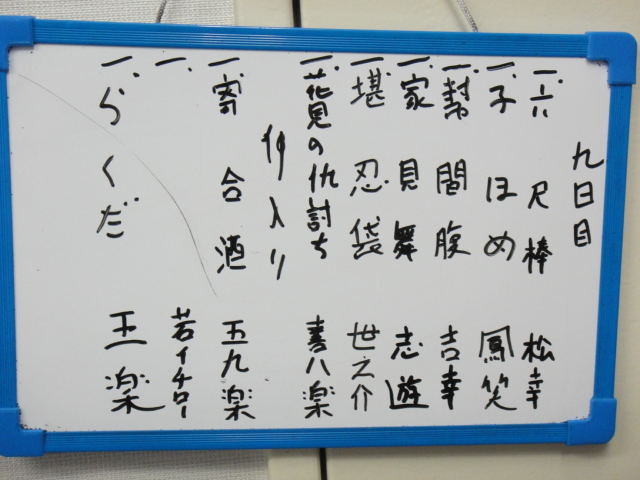 九日目
一、六尺棒 松幸
一、子ほめ 鳳笑
一、幇間腹 吉幸
一、家見舞 志遊
一、堪忍袋 世之介
一、花見の仇討ち 喜八楽
仲入り
一、寄合酒 五九楽
一、 若イチロー
一、らくだ 王楽